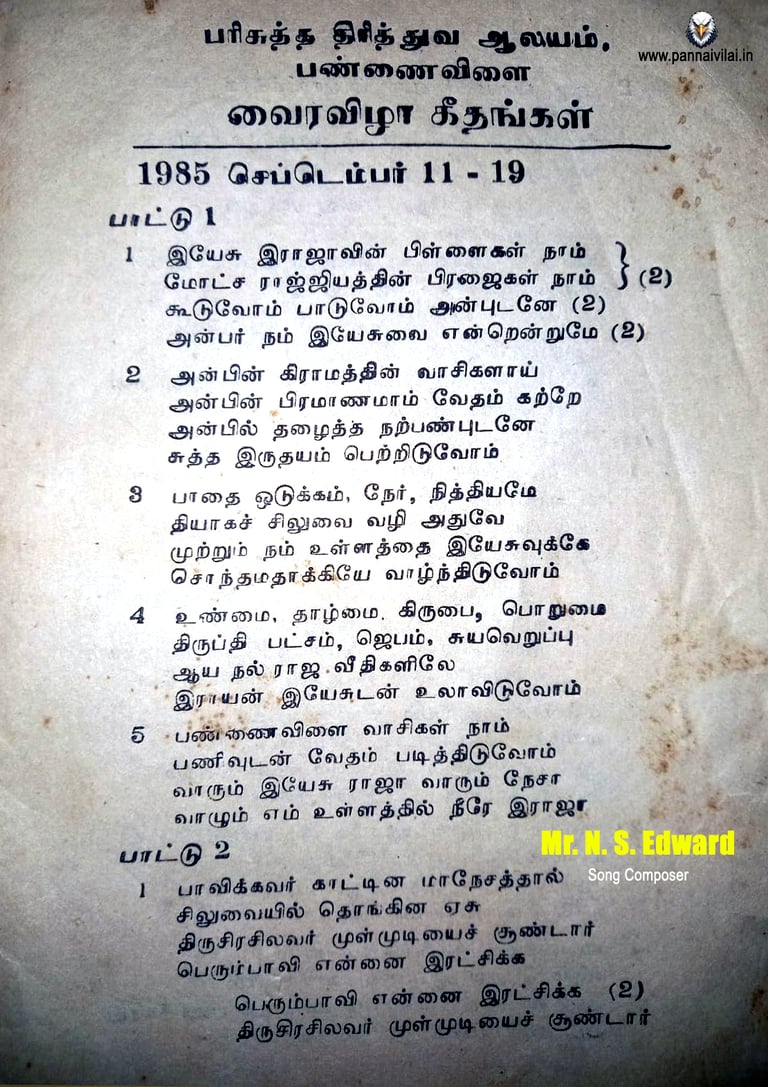 www.pannaivilai.in
பரிசுத்த திரித்துவ ஆலயம்,
பண்ணைவிளை
வைரவிழா கீதங்கள்
1985 செப்டெம்பர் 11 - 19
பாட்டு 1
1 இயேசு இராஜாவின் பிள்ளைகள் நாம்
மோட்ச ராஜ்ஜியத்தின் பிரஜைகள் நாம் } (2)
கூடுவோம் பாடுவோம் அன்புடனே (2)
அன்பர் நம் இயேசுவை என்றென்றுமே (2)
2 அன்பின் கிராமத்தின் வாசிகளாய்
அன்பின் பிரமாணமாம் வேதம் கற்றே
அன்பில் தழைத்த நற்பண்புடனே
சுத்த இருதயம் பெற்றிடுவோம்
3 பாதை ஒடுக்கம், நேர், நித்தியமே
தியாகச் சிலுவை வழி அதுவே
முற்றும் நம் உள்ளத்தை இயேசுவுக்கே
சொந்தமதாக்கியே வாழ்ந்திடுவோம்
4 உண்மை, தாழ்மை. கிருபை, பொறுமை
திருப்தி பட்சம், ஜெபம், சுயவெறுப்பு
ஆய நல் ராஜ வீதிகளிலே
இராயன் இயேசுடன் உலாவிடுவோம்
5 பண்ணைவிளை வாசிகள் நாம்
பணிவுடன் வேதம் படித்திடுவோம்
வாரும் இயேசு ராஜா வாரும் நேசா
வாழும் எம் உள்ளத்தில் நீரே இராஜா
Mr. N. S. Edward
Song Composer
பாட்டு 2
1 பாவிக்கவர் காட்டின மாநேசத்தால்
சிலுவையில் தொங்கின ஏசு
திருசிரசிலவர் முள்முடியைச் சூண்டார்
பெரும்பாவி என்னை இரட்சிக்க
பெரும்பாவி என்னை இரட்சிக்க (2)
திருசிரசிலவர் முள்முடியைச் சூண்டார்